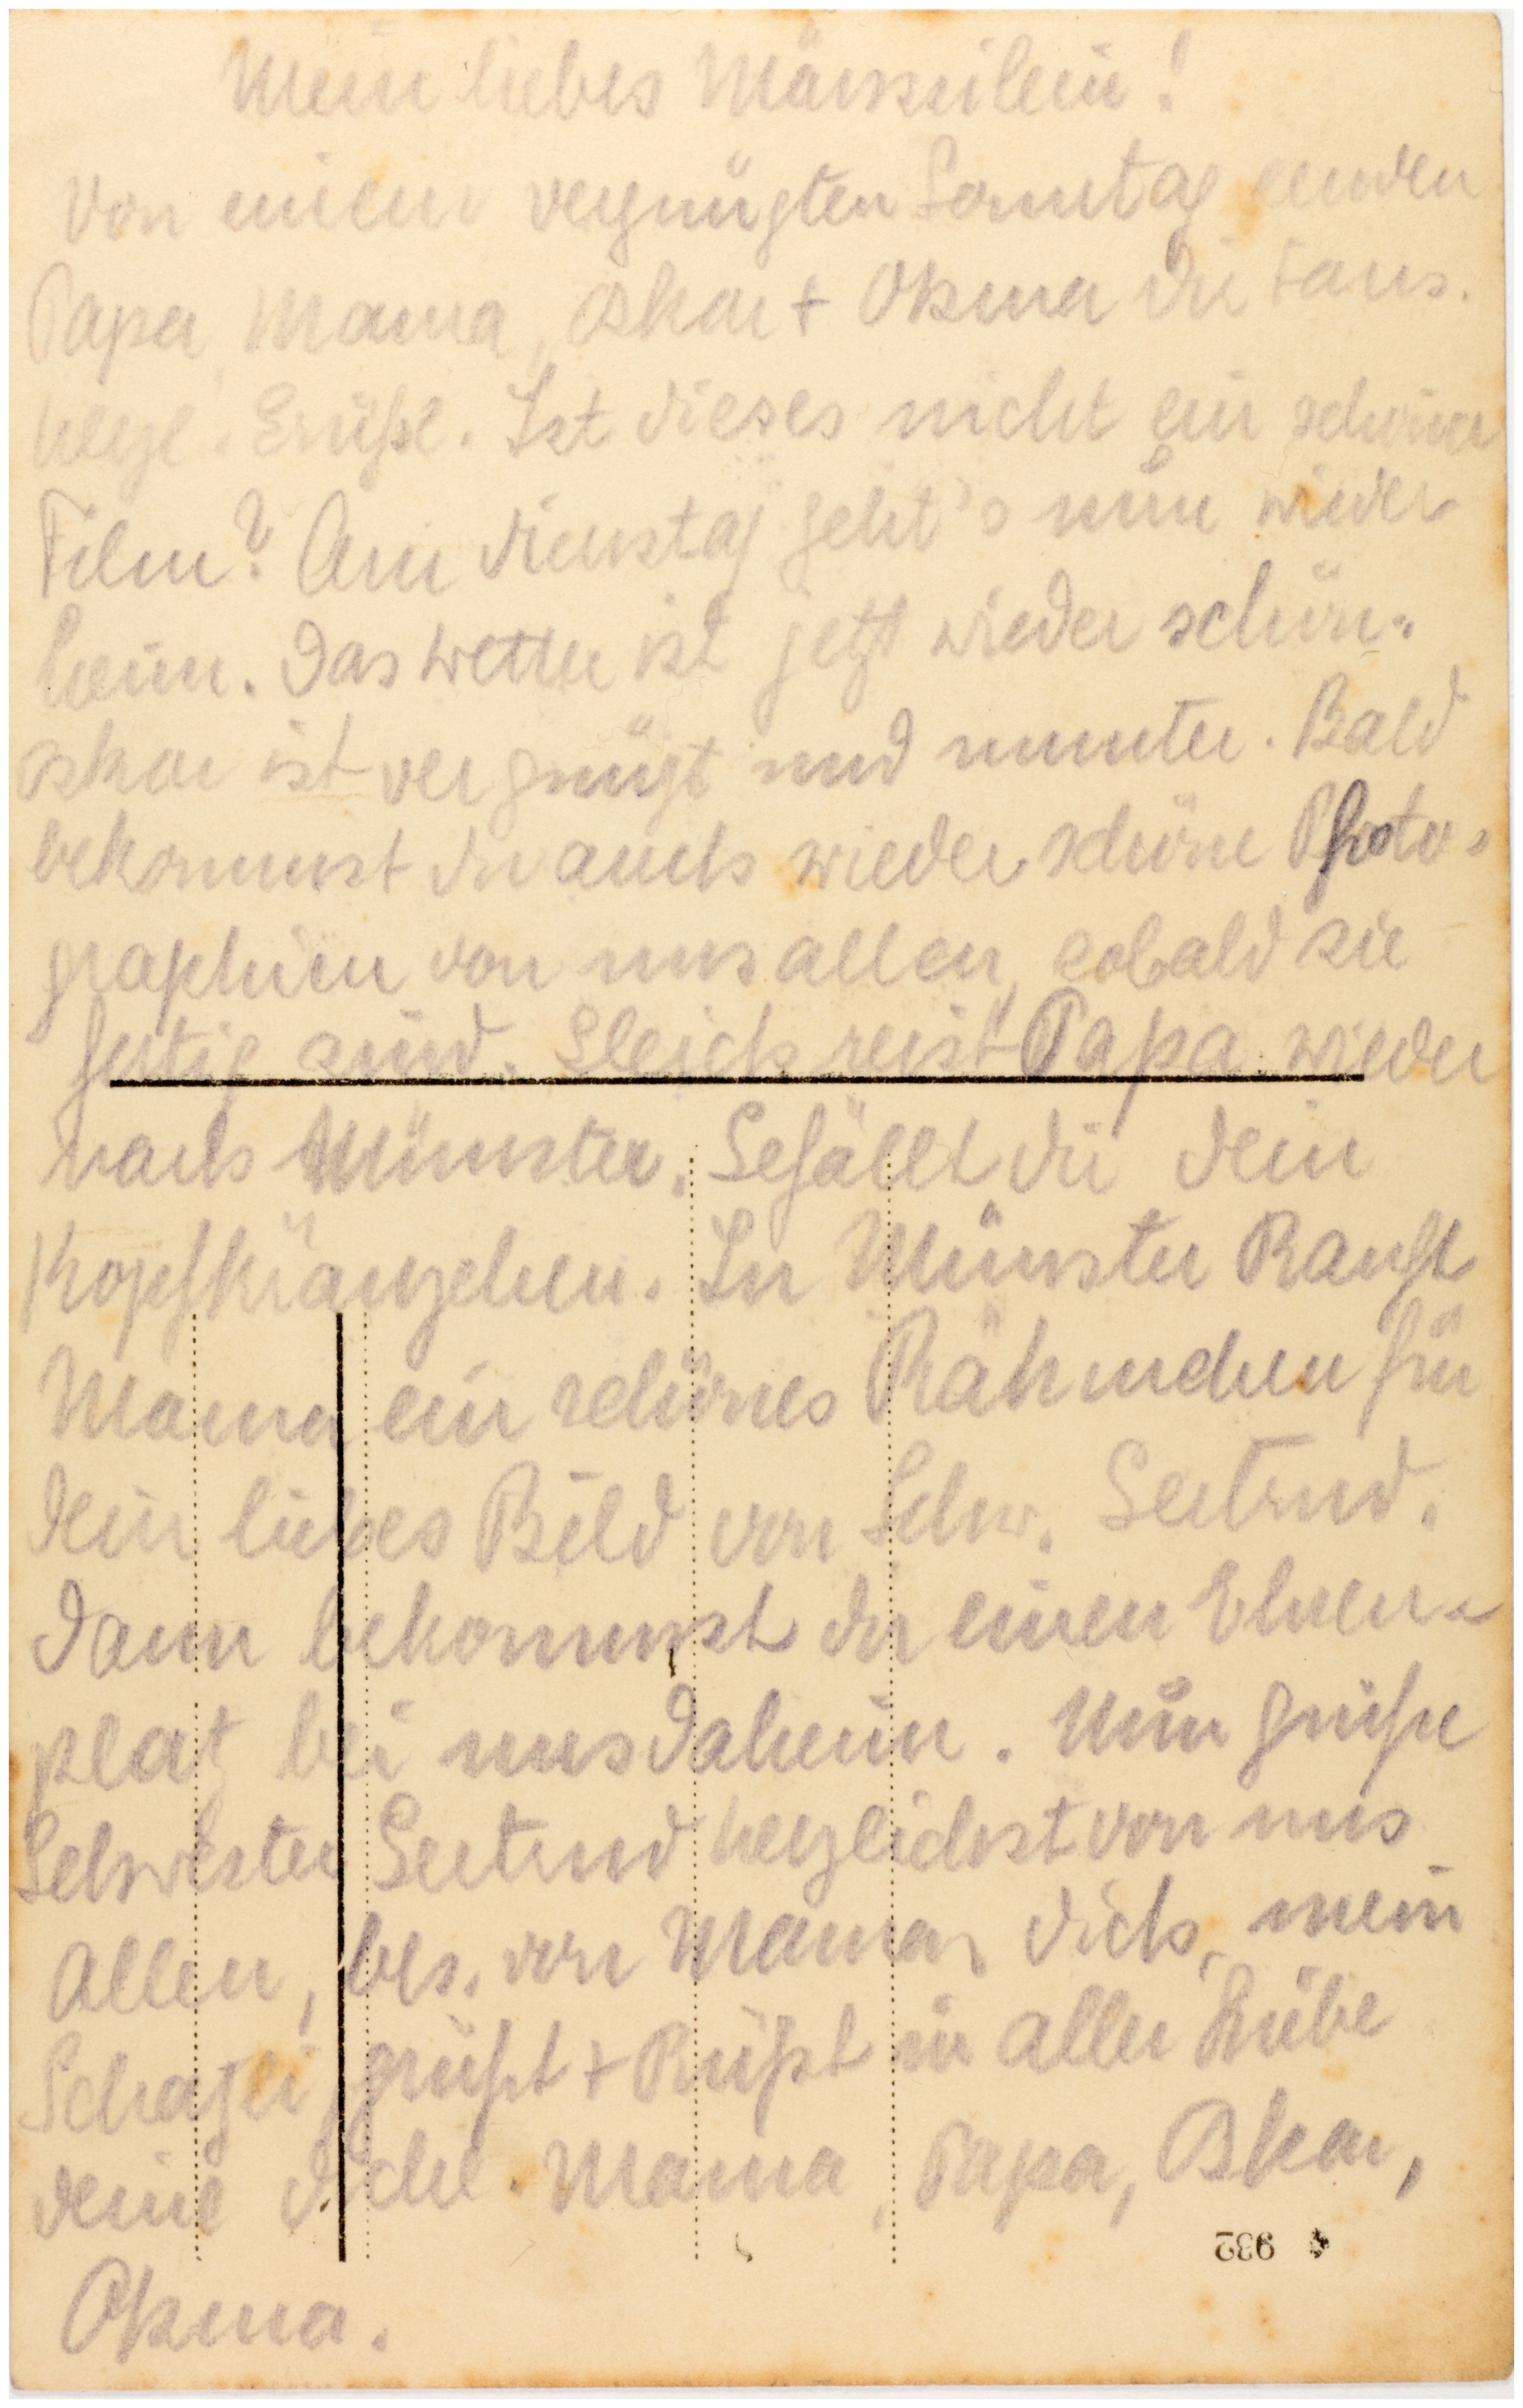 Mein liebes Mäuseilein!
Von einem vergnügten Sonntag senden
Papa, Mama, Oskar + Oksma dir taus.
herzl. Grüße. Ist dieses nicht ein schöner
Film? Am Dienstag geht's nun wieder
heim. Das Wetter ist jetzt wieder schön.
Oskar ist vergnügt und munter. Bald
bekommst du auch wieder schöne Photo-
graphien von uns allen, sobald sie
fertig sind. Gleich reist Papa wieder
nach Münster. Gefällt dir dein
Kopfkränzchen. In Münster kauft
Mama ein schönes Rähmchen für
dein liebes Bild von Schw. Gertrud.
Dann bekommst du einen Ehren-
platz bei uns daheim. Nun grüße
Schwester Gertrud herzlichst von uns
allen, bes. von Mama, dich, mein
Schatzli grüßt + küßt in aller Liebe
deine dicke Mama, Papa, Oskar,
Oksma.
932